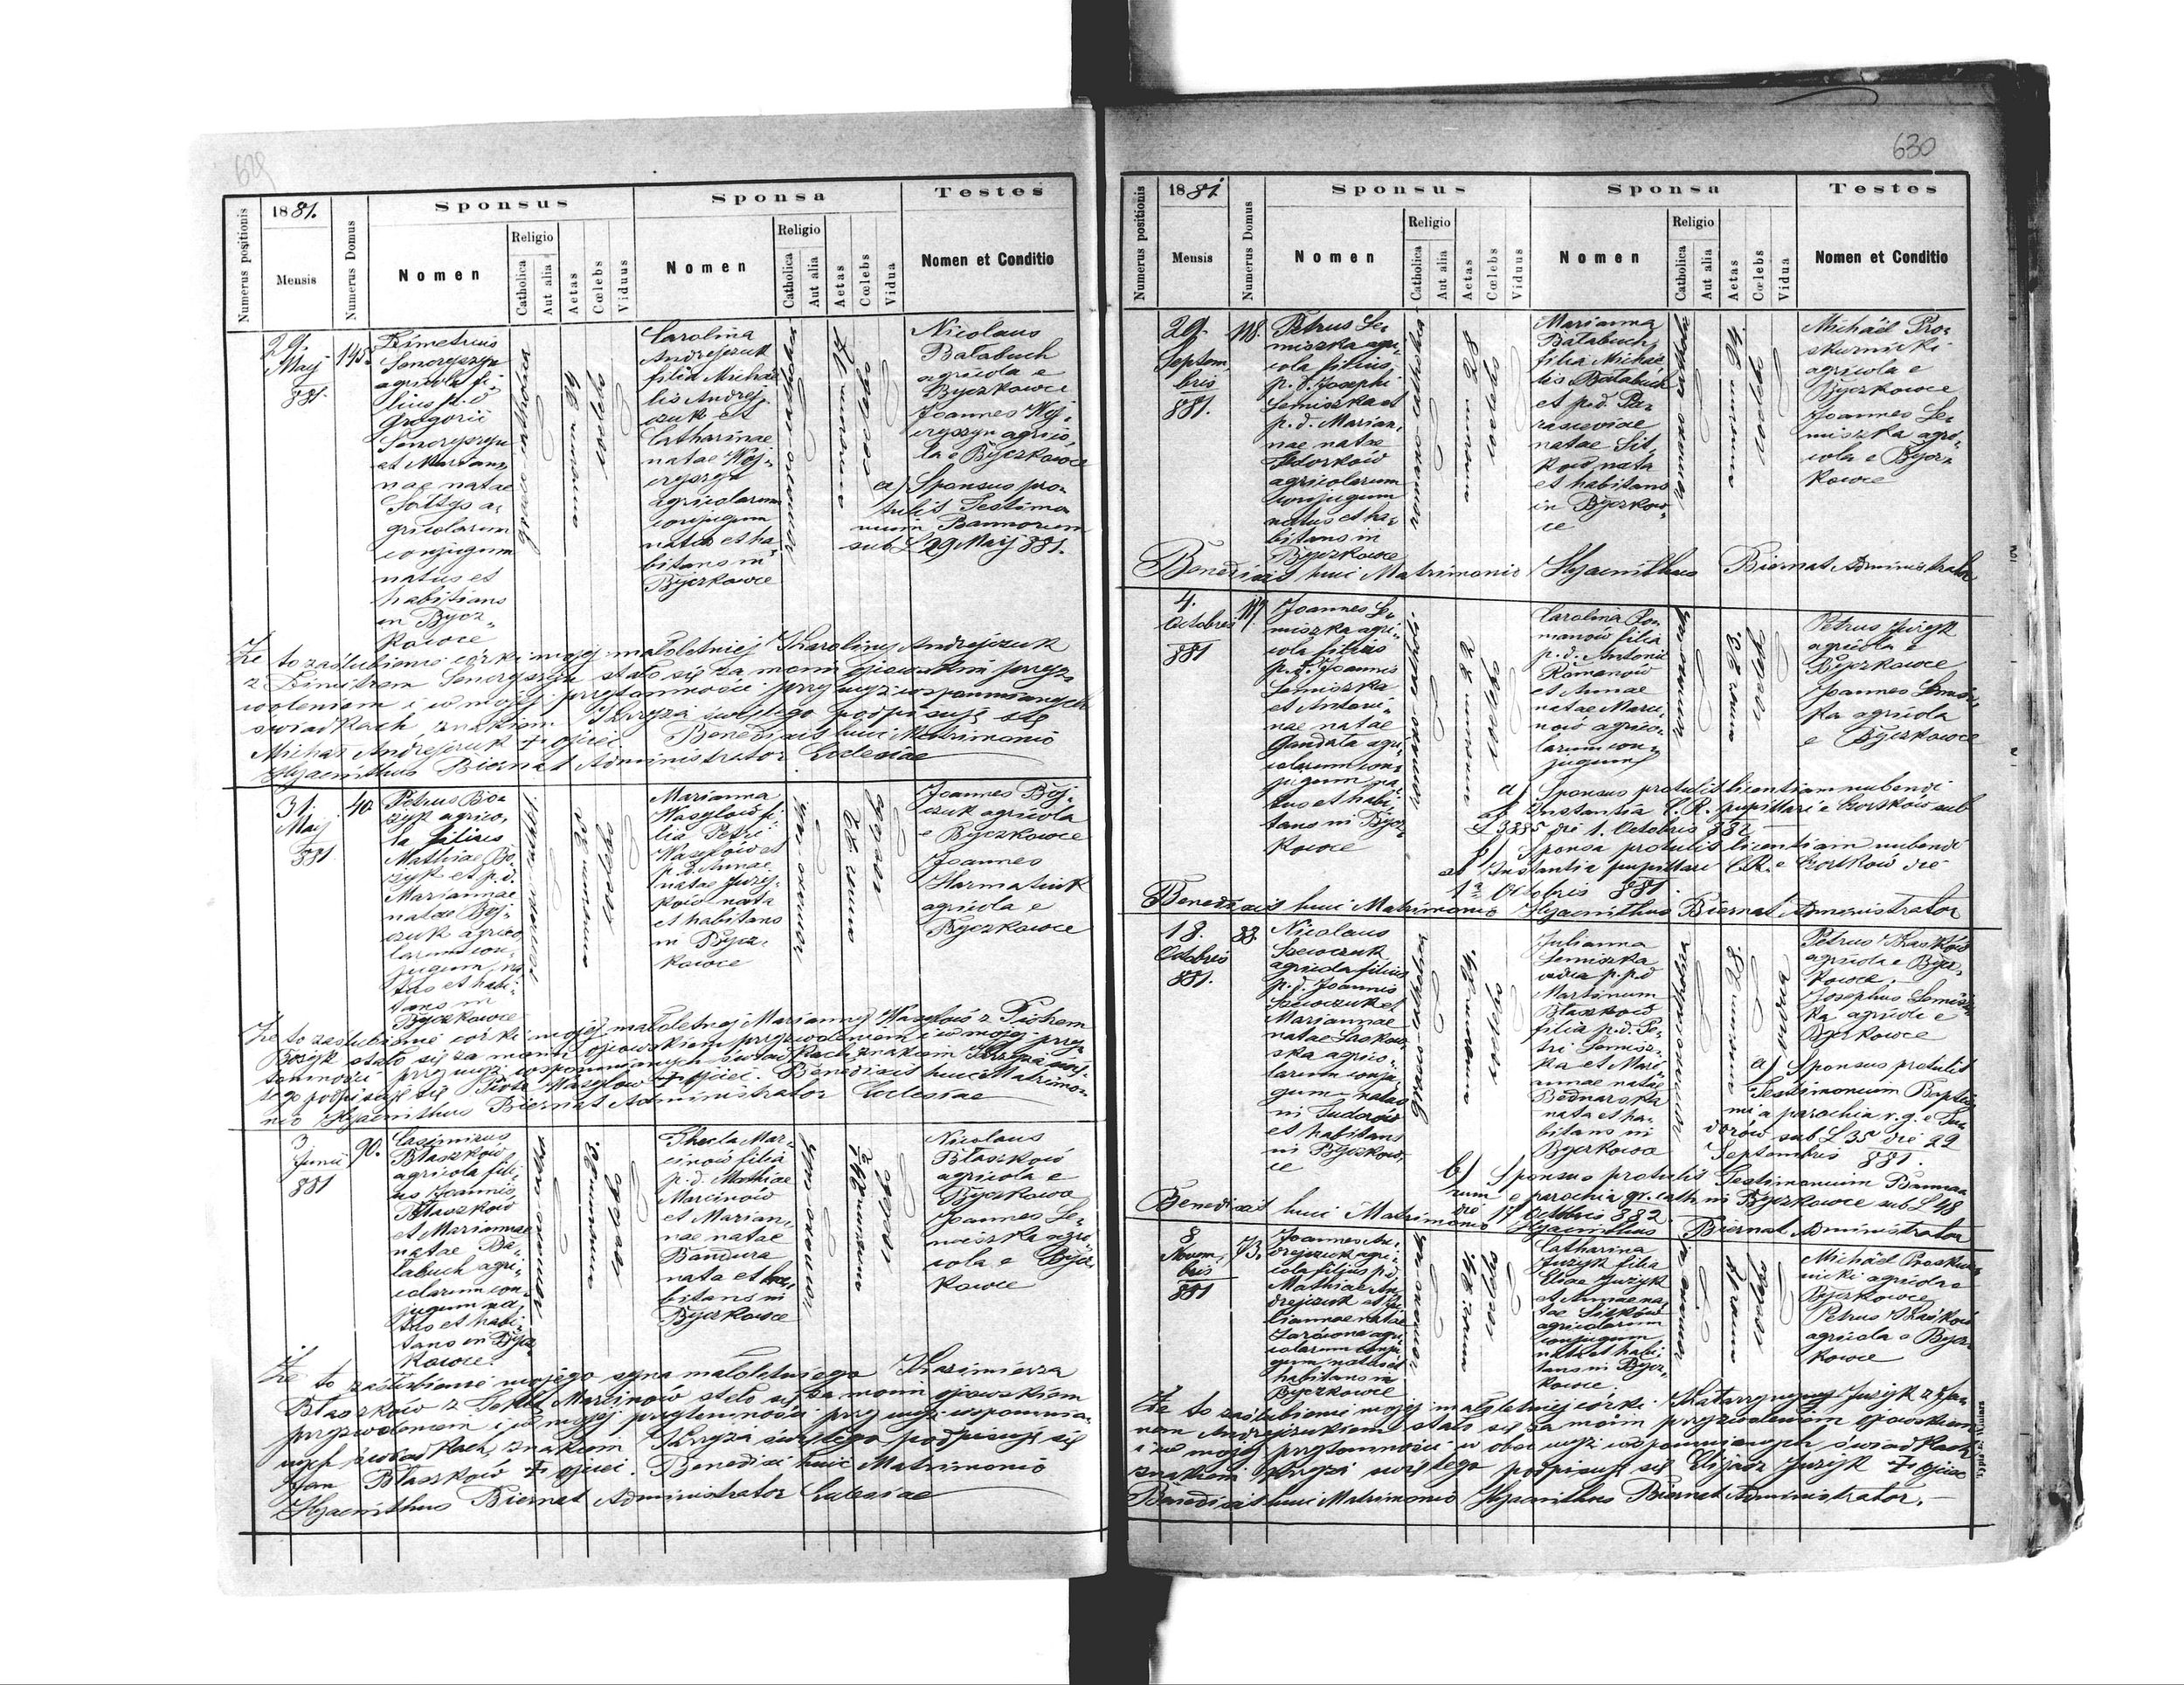 629
Numerus positionis
1881.
Mensis
Numerus Domus
Sponsus
Nomen
Religio
Catholica
Aut alia
Aetas
Cœlebs
Viduus
Sponsa
Nomen
Religio
Catholica
Aut alia
Aetas
Cœlebs
Vidua
Testes
Nomen et Conditio
29.
Maij
881.
145.
Dimetrius
agricola fi-
lius p. d.
Gregorii
et Marian-
nae natae
Sołtys a-
gricolarum
conjugum
natus et
habitans
in Bycz-
kowce
graeco-catholica
coelebs
Carolina
Andrejczuk
filia Michae-
lis Andrej-
czuk et
Catharinae
natae Woj-
agricolarum
conjugum
nata et ha-
bitans in
Byczkowce
romano-catholica
Nicolaus
Bałabuch
agricola e
Byczkowce
Joannes Woj-
agrico-
la e Byczkowce
a) Sponsus pro-
tulit Testimo-
nium Bannorum
sub L 29 Maij 881.
Że to zaślubienie córki mojej małoletniej Karoliny Andrejczuk
z Dimitrem stało się za moim ojcowskim przyz-
woleniem i w mojej przytomności przy wyż wspomnianych
świadkach, znakiem Krzyża świętego podpisuję się
Michał Andrejczuk + ojciec. Benedixit huic Matrimonio
Hyacinthus Biernat Administrator Ecclesiae
31.
Maij
881
40.
Petrus Bo-
zyk agrico-
la filius
Mathiae Bo-
zyk et p. d.
Mariannae
natae Boj-
czuk agrico-
larum con-
jugum, na-
tus et habi-
tans in
Byczkowce
coelebs
Marianna
Wasylów fi-
lia Petri
Wasylów et
p. d. Annae
natae Jurij-
ków nata
et habitans
in Bycz-
kowce
Joannes Boj-
czuk agricola
e Byczkowce
Joannes
Harmatiuk
agricola e
Byczkowce
Że to zaślubienie córki mojej małoletniej Marianny Wasylów z Piotrem
Bozyk stało się za moim ojcowskiem przyzwoleniem i w mojej przy-
tomności przy wyż wspomnianych świadkach znakiem Krzyża świę-
tego podpisuję się Piotr Wasylów + ojciec. Benedixit huic Matrimo-
nio Hyacinthus Biernat Administrator Ecclesiae
3
Junii
881
90.
Casimirus
Błaszków
agricola fili-
us Joannis
Błaszków
et Mariannae
natae Ba-
łabuch agri-
colarum con-
jugum na-
tus et habi-
tans in Bycz-
kowce.
coelebs
Thecla Mar-
cinów filia
p. d. Mathiae
Marcinów
et Marian-
nae natae
Bandura
nata et ha-
bitans in
Byczkowce
coelebs
Nicolaus
Błaszków
agricola e
Byczkowce
Joannes Se-
miszka agri-
cola e Bycz-
kowce
Że to zaślubienie mojego syna małoletniego Kazimierza
Błaszków z Teklą Marcinów stało się za moim ojcowskiem
przyzwoleniem i w mojej przytomności przy wyż wspomnia-
nych świadkach, znakiem Krzyża świętego podpisuję się
Jan Błaszków + ojciec. Benedixi huic Matrimonio
Hyacinthus Biernat Administrator Ecclesiae
630
Numerus positionis
1881.
Mensis
Numerus Domus
Sponsus
Nomen
Religio
Catholica
Aut alia
Aetas
Cœlebs
Viduus
Sponsa
Nomen
Religio
Catholica
Aut alia
Aetas
Cœlebs
Vidua
Testes
Nomen et Conditio
29.
Septem
bris
881.
118.
Petrus Se-
miszka agri-
cola filius
p. d. Josephi
Semiszka et
p. d. Marian-
nae natae
agricolarum
conjugum
natus et ha-
bitans in
Byczkowce
romano-catholica
coelebs
Marianna
Bałabuch
filia Michae-
lis Bałabuch
et p. d. Pa-
rasceviae
natae Sit-
ków nata
et habitans
in Byczkow-
ce
romano-catholica
coelebs
Michaël Pro-
skurnicki
agricola e
Byczkowce
Joannes Se-
miszka agri-
cola e Bycz-
kowce
Benedixit huic Matrimonio Hyacinthus Biernat Administrator
4.
Octobris
881
117.
Joannes Se-
miszka agri-
cola filius
p. d. Joannis
Semiszka
et Antoni-
nae natae
Gandała agri-
colarum con-
jugum na-
tus et habi-
tans in Bycz-
kowce
coelebs
Carolina Ro-
manów filia
p. d. Antonii
Romanów
et Annae
natae Marci-
nów agrico-
larum con-
jugum
coelebs
Petrus Jurijk
agricola e
Byczkowce
Joannes Semisz-
ka agricola
e Byczkowce
a) Sponsus protulit licentiam nubendi
ab Instantia C. R. pupillari e Czortków sub
L 3385 die 1. Octobris 881
b) Sponsa protulit licentiam nubendi
ab Instantia pupillari C.R. e Czortków die
1a Octobris 881.
Benedixit huic Matrimonio Hyacinthus Biernat Administrator
18.
Octobris
881.
88.
Nicolaus
Szewczuk
agricola filius
p. d. Joannis
Szewczuk et
Mariannae
natae Laskow-
ska agrico-
larum conju-
gum natus
in Tudorów
et habitans
in Byczkow-
ce
graeco-catholica
coelebs
Julianna
Semiszka
vidua p. p. d
Martinum
Błaszków
filia p. d. Pe-
tri Semisz-
ka et Mari-
annae natae
Bednarska
nata et ha-
bitans in
Byczkowce
romano-catholica
vidua
Petrus Kraśków
agricola e Bycz-
kowce.
Josephus Semisz-
ka agricola e
Byczkowce
a) Sponsus protulit
Testimonium Baptis-
mi a parochia r. g. e Tu-
dorów sub L 35 die 22
Septembris 881.
b) Sponsus protulit Testimonium Banno-
rum e parochia gr. cath. in Byczkowce sub L 48
die 17 Octobris 882
Benedixit huic Matrimonio Hyacinthus Biernat Administrator
8
Novem
bris
881
73.
Joannes An-
drejczuk agri-
cola filius p. d.
Mathiae An-
drejczuk et Ju-
liannae natae
agri-
colarum conju-
gum natus et
habitans in
Byczkowce
coelebs
Catharina
Jurijk filia
Eliae Jurijk
et Annae na-
tae Sitków
agricolarum
conjugum
nata et habi-
tans in Bycz-
kowce.
coelebs
Michaël Proskur-
nicki agricola e
Byczkowce
Petrus Kraśków
agricola e Bycz-
kowce
Że to zaślubienie mojej małoletniej córki Katarzyny Jurijk z Ja-
nem Andrejczukiem stało się za moim przyzwoleniem ojcowskiem
i w mojej przytomności w obec wyż wspomnianych świadków
znakiem Krzyża świętego podpisuję się Elijasz Jurijk + ojciec
Benedixit huic Matrimonio Hyacinthus Biernat Administrator.